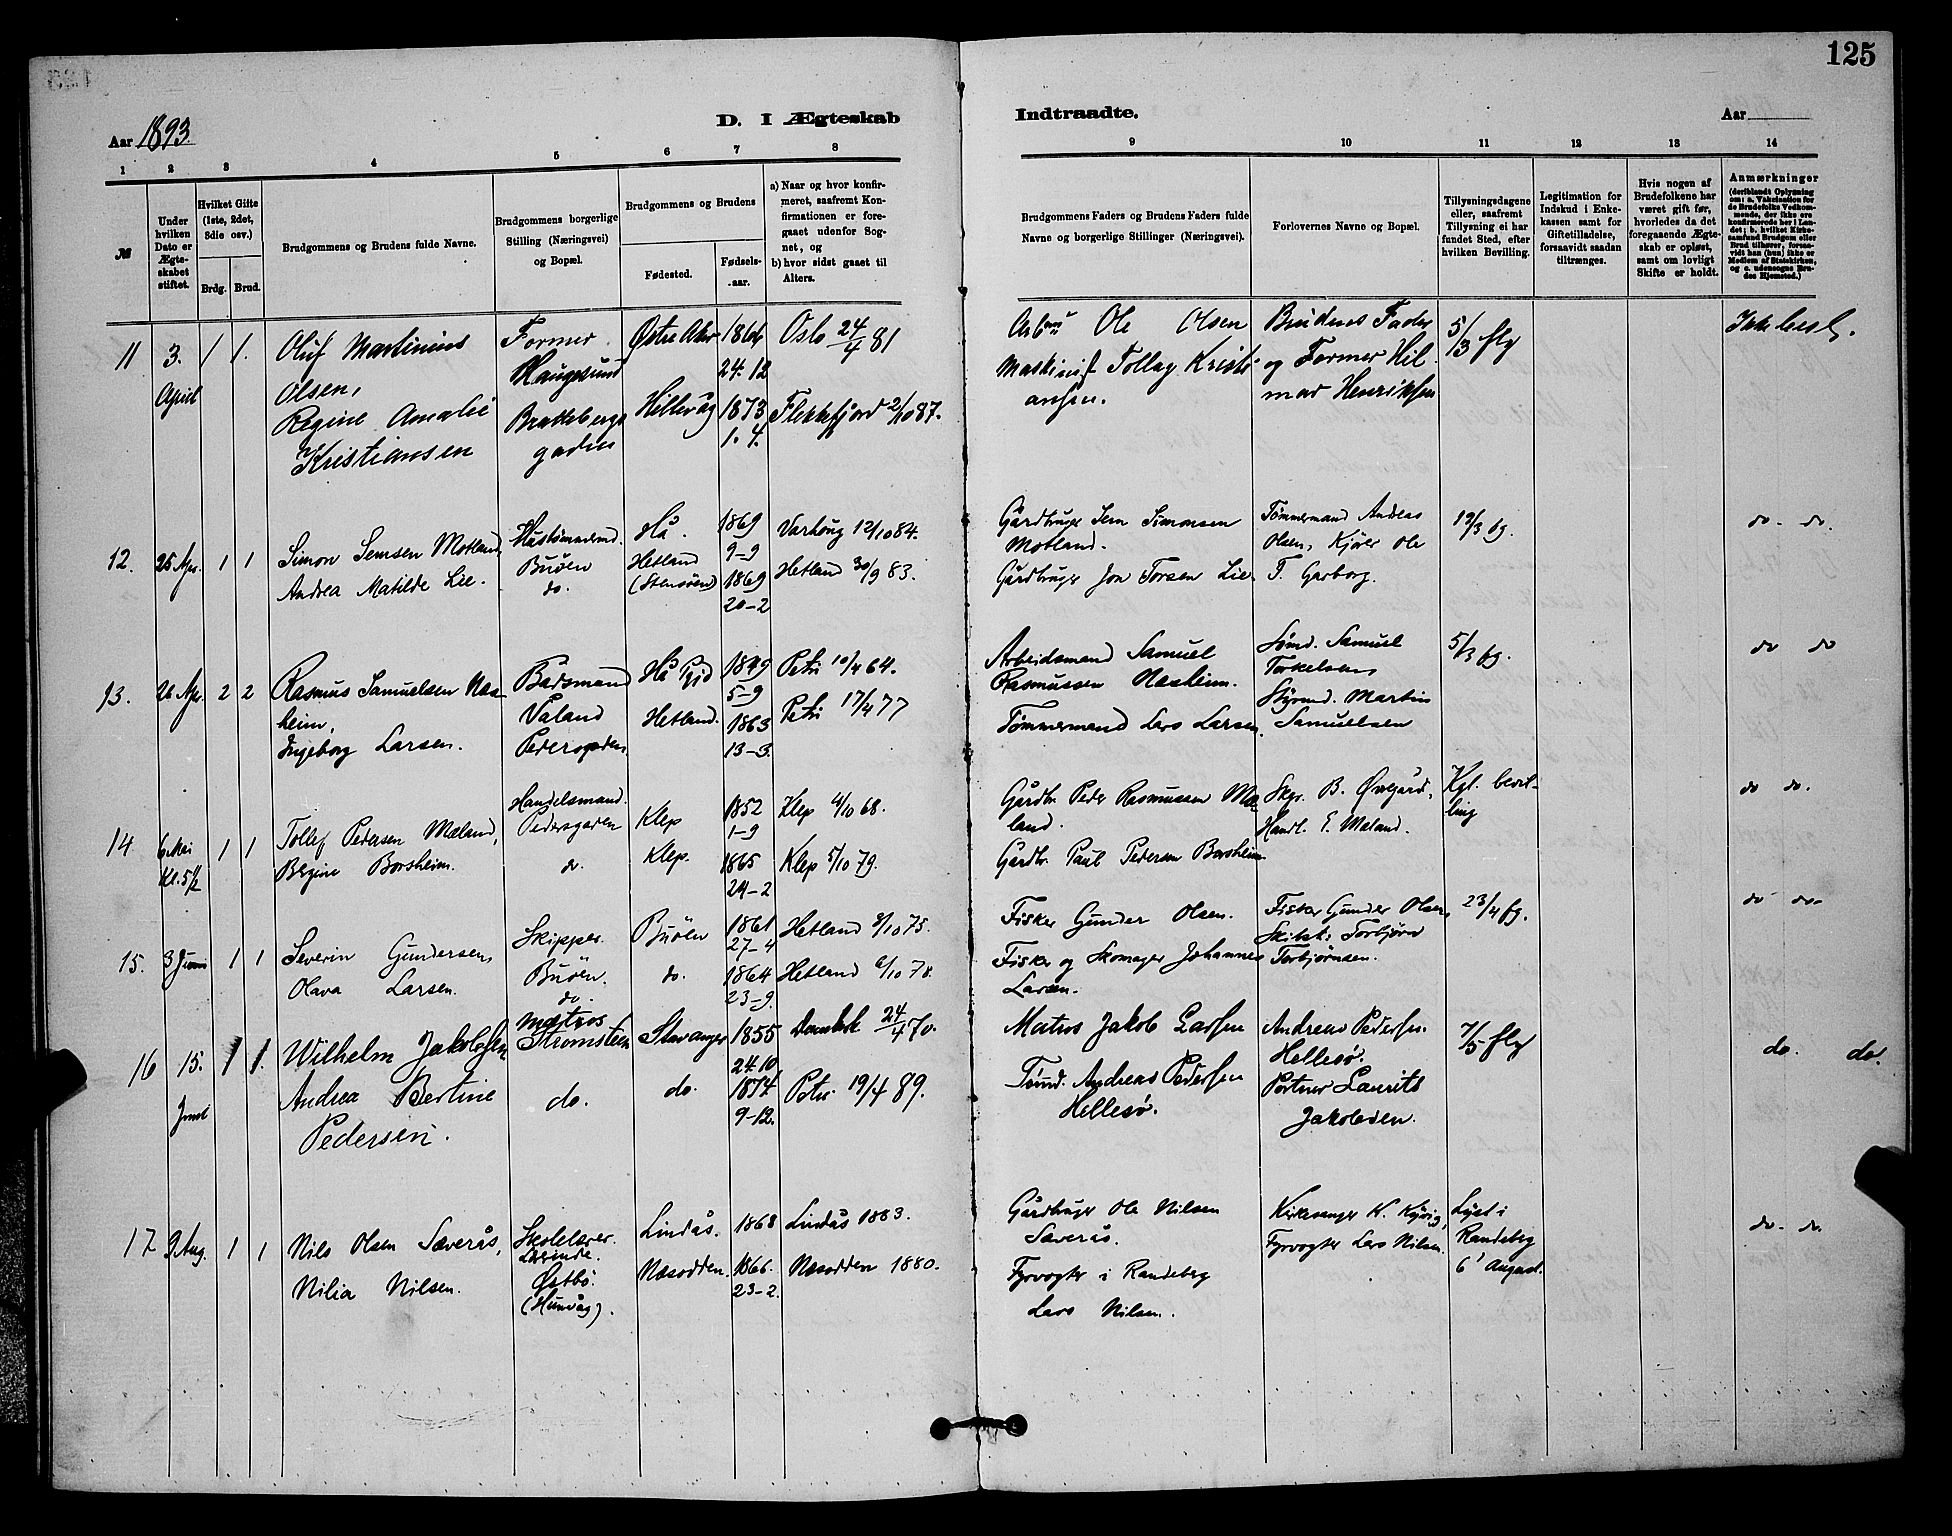 125
Aar 1893.
D. I Ægteskab
Indtraadte.
Aar
1 2 3 4 5 6 7 8 9 10 11 12 13 14
№
Under hvilken Dato er Ægteskabet stiftet.
Hvilket Gifte (1ste, 2det, 3die osv.)
Brdg. Brud.
Brudgommens og Brudens fulde Navne.
Brudgommens borgerlige Stilling (Næringsvei) og Bopæl.
Brudgommens og Brudens
Fødested.
Fødsels-aar.
a) Naar og hvor konfirmeret, saafremt Konfirmationen er foregaaet udenfor Sognet, og
b) hvor sidst gaaet til Alters.
Brudgommens Faders og Brudens Faders fulde Navne og borgerlige Stillinger (Næringsvei).
Forlovernes Navne og Bopæl.
Tillysningsdagene eller, saafremt Tillysning ei har fundet Sted, efter hvilken Bevilling.
Legitimation for Indskud i Enkekassen samt for Giftetilladelse, forsaavidt saadan tiltrænges.
Hvis nogen af Brudefolkene har været gift før, hvorledes da det foregaaende Ægteskab er opløst, samt om lovligt Skifte er holdt.
Anmærkninger
(deriblandt Oplysning om: a. Vakcination for de Brudefolks Vedkommende, der ikke ere konfirmerede her i Landet; b. hvilket Kirkesamfund Brudgom eller Brud tilhører, forsaavidt han (hun) ikke er Medlem af Statskirken, og c. udensogns Brudes Hjemsted.)
11 3. April 1 1.
Oluf Martinius
Olsen,
Regine Amalie
Kristiansen
Former
Haugesund
Østre Aker
Hillevåg
24.12
1873
1. 4.
Oslo 24/4 81
Flekkefjord 2/10 87.
Ole Olsen
Maskinist Tollag Kristi-
ansen.
Brudens Fader
og Former Hil-
mar Henriksen
5/3 flg
12. 25 Apr. 1 1
Simon Semsen Motland,
Andrea Matilde Lie.
Hustømmermd.
Buöen
do.
Hå.
Hetland
(Stensöen)
1869
9-9
1869
20-2
Varhoug 12/10 84.
Hetland 30/9 83.
Gårdbruger Sem Simonsen
Motland.
Gårdbruger Jon Torsen Lie.
Tømmermand Andreas
Olsen, Kjører Ole
T. Garborg.
19/3 fg.
do. do.
13. 26 Apr. 2 2
Rasmus Samuelsen Næs-
heim,
Ingeborg Larsen.
Bådsmand
Våland
Pedersgaden
Hå
Hetland.
5-9
1863
13-3.
Petri 10/4 64.
Petri 17/4 77
Arbeidsmand Samuel
Rasmussen Næsheim.
Tømmermand Lars Larsen.
Sømd. Samuel
Torkelsen
Styrmd. Martin
Samuelsen
5/3 fg.
do do
14 6 Mai Kl. 5 1/2 1 1
Tollef Pedersen Mæland,
Bergine Borsheim.
Handelsmand.
Pedersgaden
do.
Klep
Klep.
1852
1-9
1865
24-2
Klep 4/10 68.
Klep 5/10 79.
Gårdbr. Peder Rasmussen Mæ-
land.
Gårdbr. Paul Pedersen Borsheim
B. Øvregård,
Handl. E. Mæland.
Kgl. bevil-
ling
do do.
15. 3 Juni 1 1
Severin Gundersen,
Olava Larsen.
Skipper.
Buöen.
do.
Buöen
do.
1861
27-4
1864
23-9.
Hetland 3/10 75.
Hetland 6/10 78.
Fisker Gunder Olsen.
Fisker og Skomager Johannes
Larsen.
Fisker Gunder Olsen,
Torbjörn
Torbjörnsen.
23/4 fg.
do do.
16 15. Juni 1 1.
Wilhelm Jakobsen
Andrea Bertine
Pedersen.
Matros
Strømsteen
do.
Stavanger
do.
1855
24.10
1874.
9-12.
Domkirk 24/4 70.
Petri 19/4 89.
Matros Jakob Larsen
Tømd. Andreas Pedersen
Hellesø.
Andreas Pedersen
Hellesø.
Portner Laurits
Jakobsen.
7/5 flg
do. do.
17 9 Aug. 1 1
Nils Olsen Sæverås,
Nilia Nilsen.
Skolelærer.
Lærinde.
Østbö.
(Hunvåg).
Lindås.
Næsodden.
1868
1866.
23-2.
Lindås 1883.
Næsodden 1880.
Gårdbruger Ole Nilsen
Sæverås.
Fyrvogter i Randeberg
Lars Nilsen.
Kirkesanger K. Kyvig,
Fyrvogter Lars Nilsen.
Lyst i
Randeberg
6' August.
do. do.